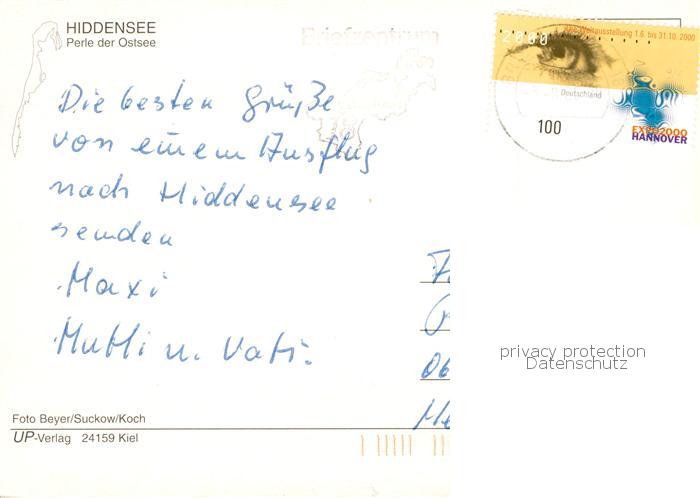 HIDDENSEE
Perle der Ostsee
Briefzentrum
2000
Weltausstellung 1.6. bis 31.10. 2000
Deutschland
100
EXPO2000
HANNOVER
Die besten Grüße
von einem Ausflug
nach Hiddensee
senden
Maxi
Mutti u. Vati.
06
privacy protection
Datenschutz
Foto Beyer/Suckow/Koch
UP-Verlag 24159 Kiel